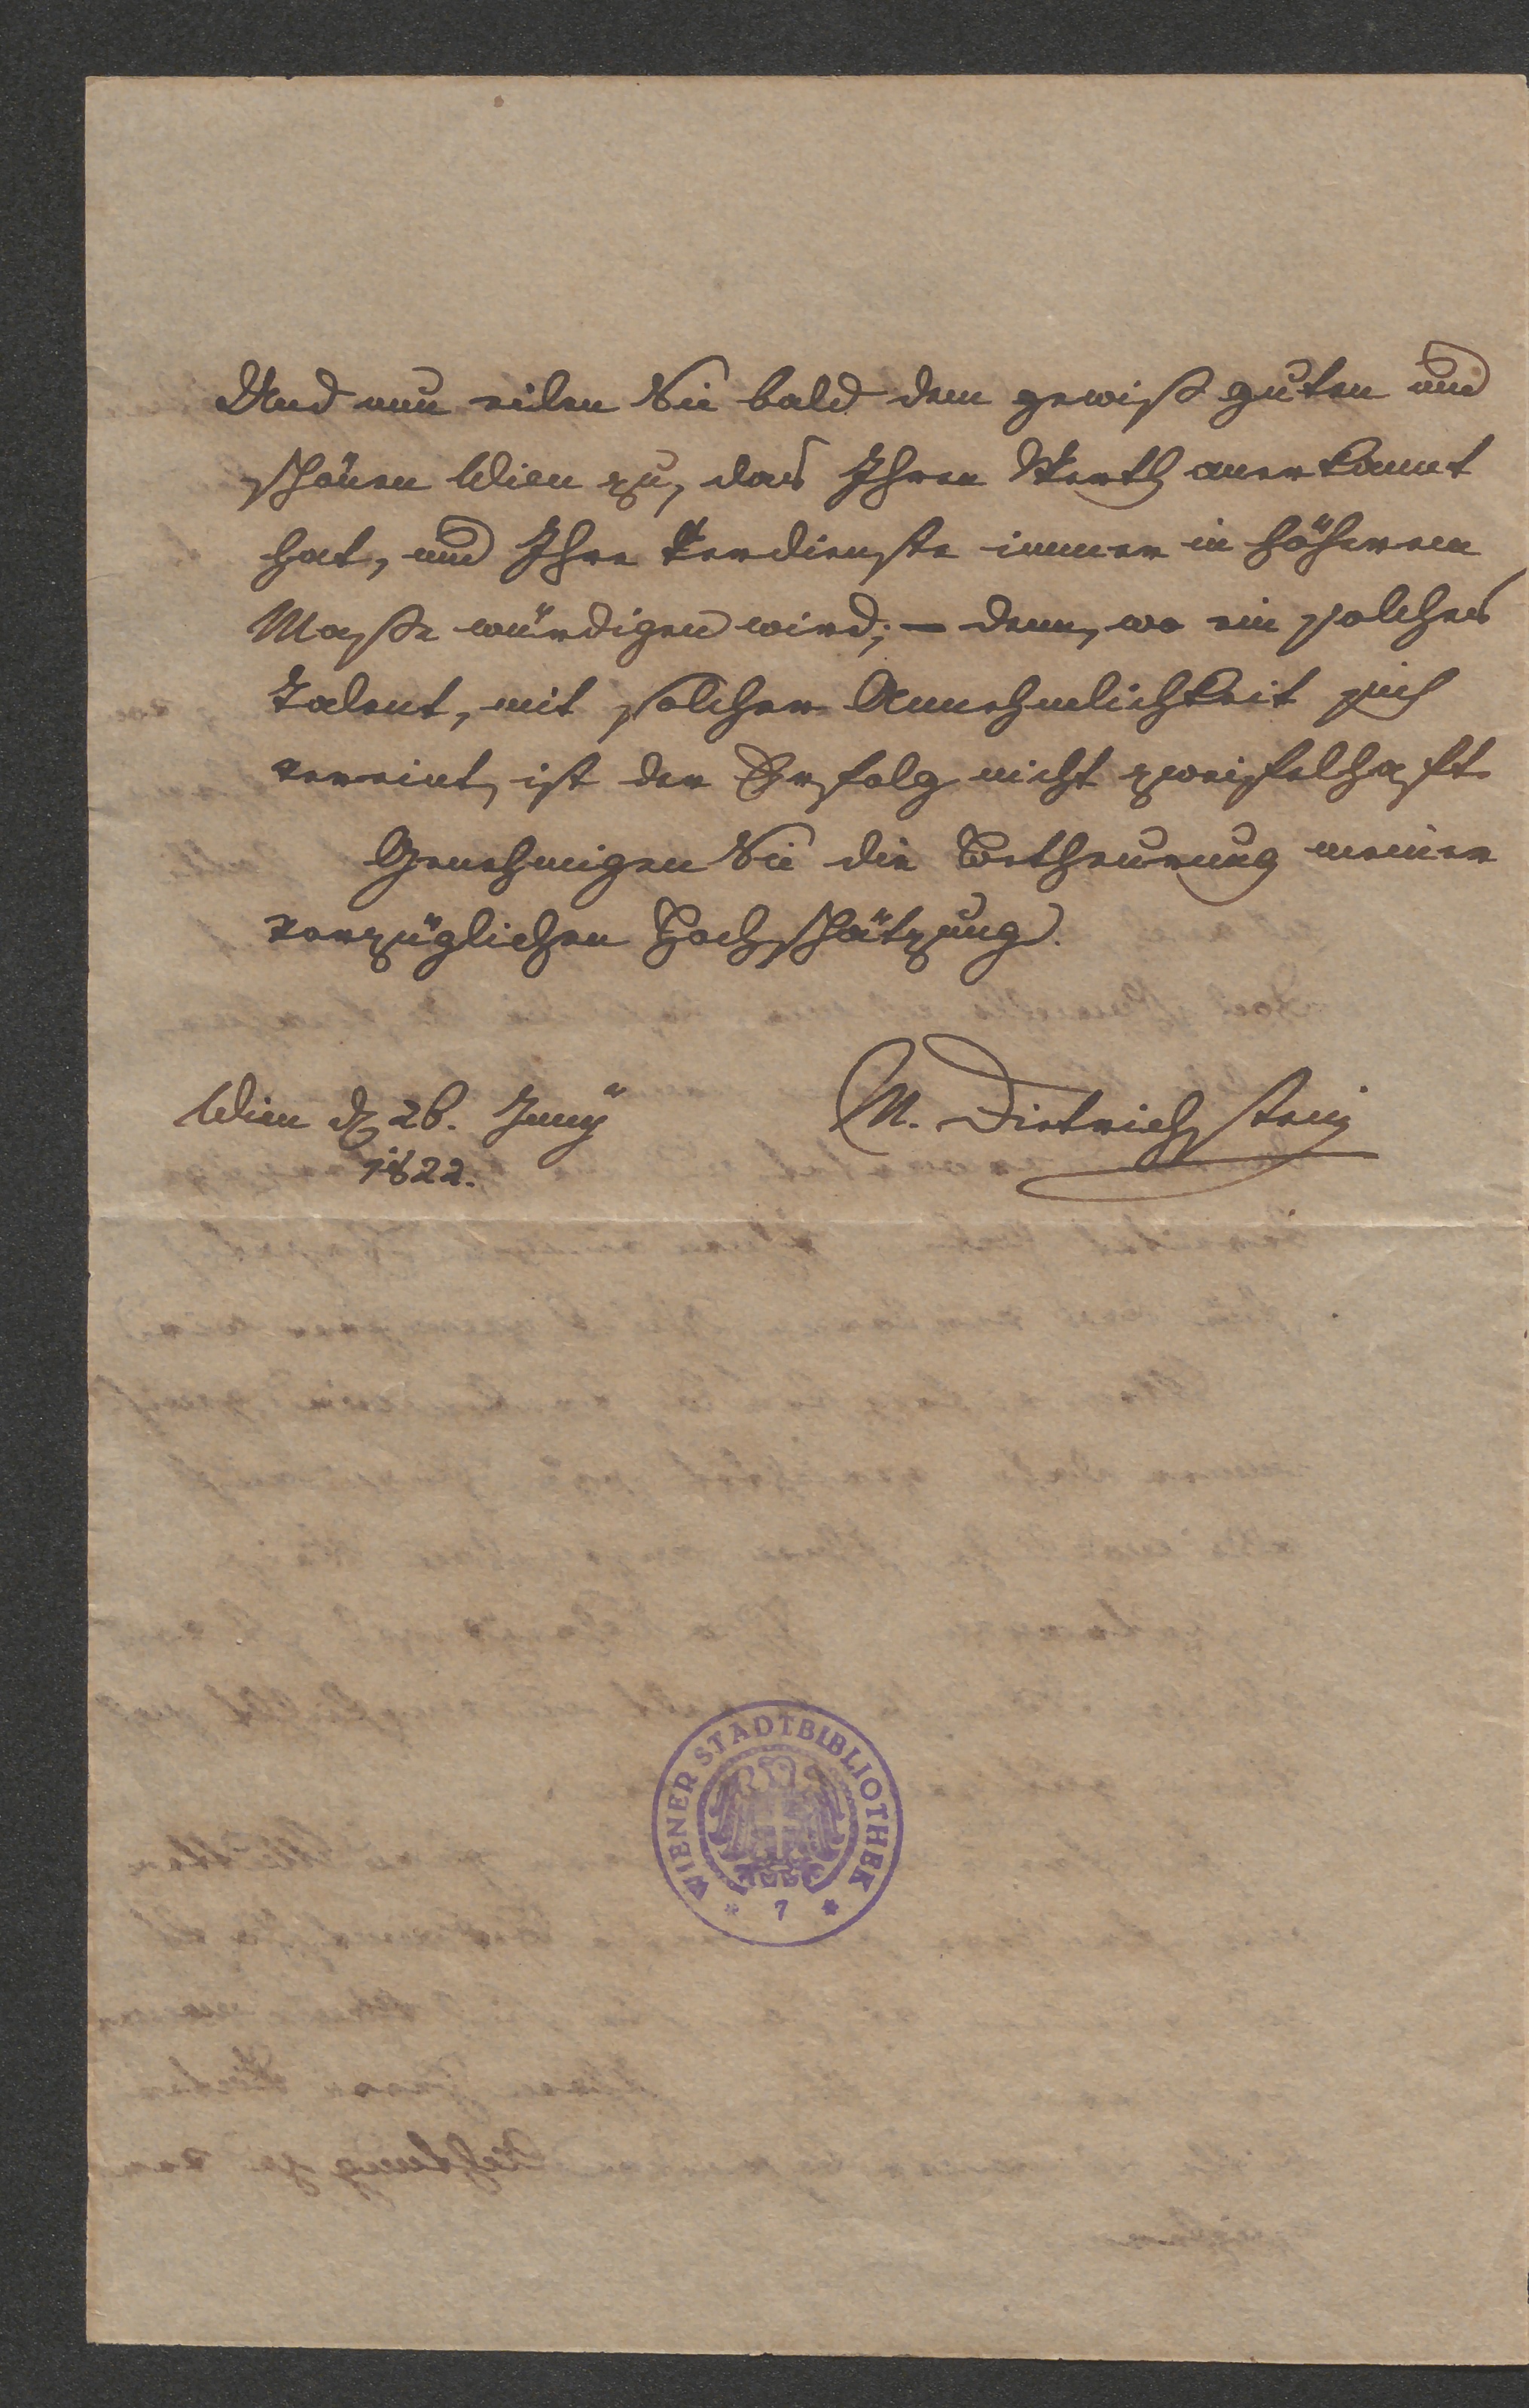 Und nun eilen Sie bald dem gewiß guten und
schönen Wien zu, das Ihren Werth anerkannt
hat, und Ihre Verdienste immer in höherem
Maße würdigen wird; – denn, wo ein solches
Talent, mit solcher Annehmlichkeit sich
vereint, ist der Erfolg nicht zweifelhaft.
Genehmigen Sie die Betheurung meiner
vorzüglichen Hochschätzung.
Wien d. 26. Juny
1822.
M. Dietrichstein
WIENER STADTBIBLIOTHEK
* 7 *